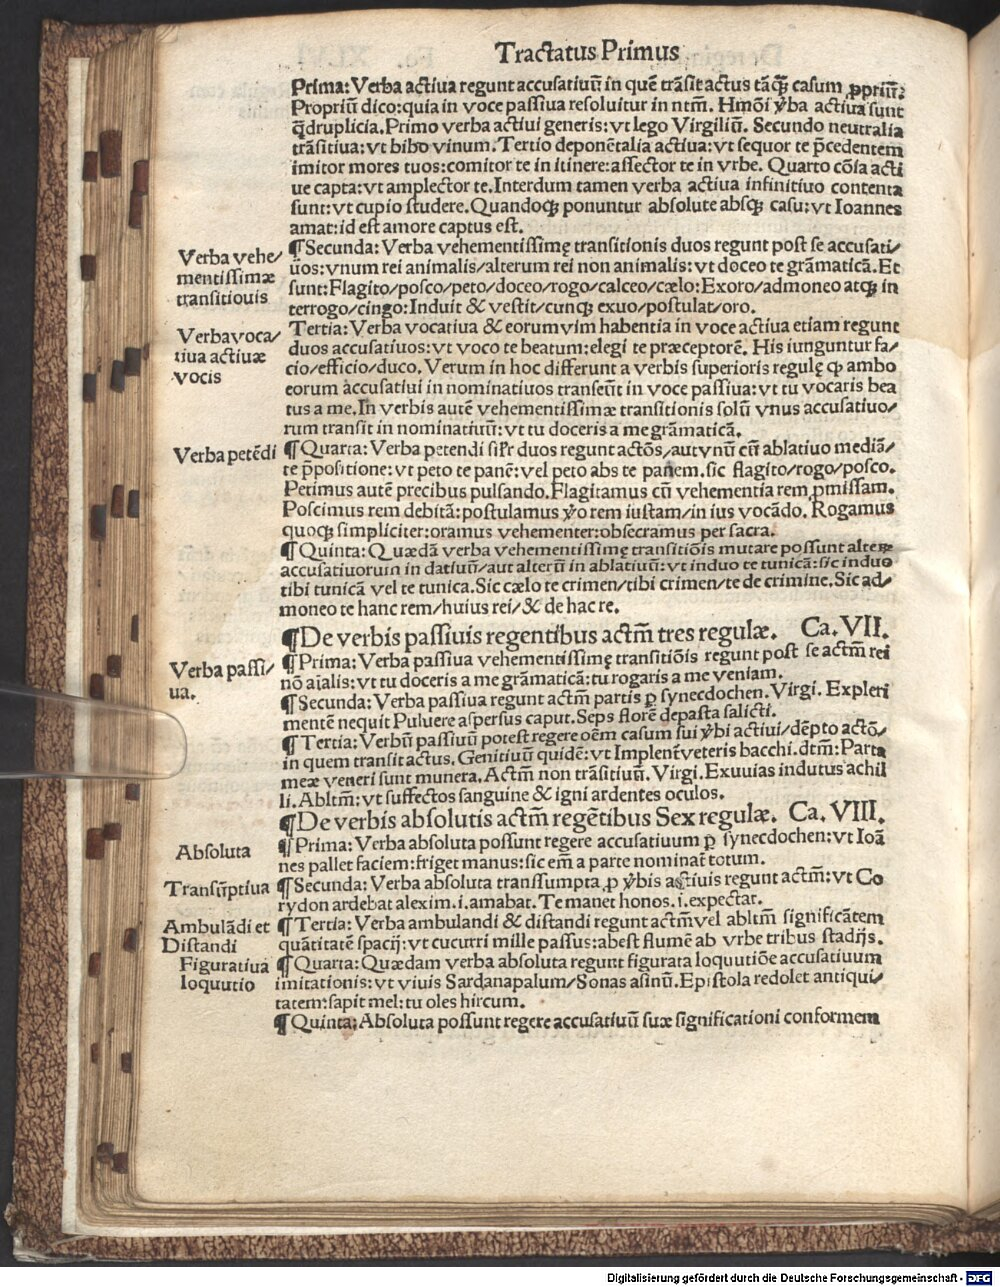 Tractatus Primus
Prima: Verba actiua regunt accusatiuū in quē trāsit actus tāꝗ̃ casum ꝓpriū:
Propriū dico: quia in voce passiua resoluitur in ntm̄. Hmōi v̾ba actiua sunt
q̄druplicia. Primo verba actiui generis: vt lego Virgiliū. Secundo neutralia
trāsitiua: vt bibo vinum. Tertio deponētalia actiua: vt sequor te p̄cedentem
imitor mores tuos: comitor te in itinere: assector te in vrbe. Quarto cōia acti
ue capta: vt amplector te. Interdum tamen verba actiua infinitiuo contenta
sunt: vt cupio studere. Quandoqꝫ ponuntur absolute absqꝫ casu: vt Ioannes
amat: id est amore captus est.
Verba vehe/
mentissimæ
transitiouis
¶ Secunda: Verba vehementissimę transitionis duos regunt post se accusati/
uos: vnum rei animalis/alterum rei non animalis: vt doceo te grāmaticā. Et
sunt: Flagito/posco/peto/doceo/rogo/calceo/cælo: Exoro/admoneo atqꝫ in
terrogo/cingo: Induit & vestit/cunqꝫ exuo/postulat/oro.
Verba voca/
tiua actiuæ
vocis
Tertia: Verba vocatiua & eorum vim habentia in voce actiua etiam regunt
duos accusatiuos: vt voco te beatum: elegi te præceptorē. His iunguntur fa/
cio/efficio/duco. Verum in hoc differunt a verbis superioris regulę ꝙ ambo
eorum accusatiui in nominatiuos transeūt in voce passiua: vt tu vocaris bea
tus a me. In verbis autē vehementissimæ transitionis solū vnus accusatiuo/
rum transit in nominatiuū: vt tu doceris a me grāmaticā.
Verba petēdi
¶ Quarta: Verba petendi sil̄r duos regunt actōs/aut vnū cū ablatiuo mediā/
te p̄positione: vt peto te panē: vel peto abs te panem. sic flagito/rogo/posco.
Petimus autē precibus pulsando. Flagitamus cū vehementia rem ꝓmissam.
Poscimus rem debitā: postulamus v̾o rem iustam/in ius vocādo. Rogamus
quoqꝫ simpliciter: oramus vehementer: obsecramus per sacra.
¶ Quinta: Quædā verba vehementissimę transitiōis mutare possunt alteꝝ
accusatiuorum in datiuū/aut alterū in ablatiuū: vt induo te tunicā: sic induo
tibi tunicā vel te tunica. Sic cælo te crimen/tibi crimen/te de crimine. Sic ad/
moneo te hanc rem/huius rei/& de hac re.
¶ De verbis passiuis regentibus actm̄ tres regulæ. Ca. VII.
Verba passi/
ua.
¶ Prima: Verba passiua vehementissimę transitiōis regunt post se actm̄ rei
nō aīalis: vt tu doceris a me grāmaticā: tu rogaris a me veniam.
¶ Secunda: Verba passiua regunt actm̄ partis ꝑ synecdochen. Virgi. Expleri
mentē nequit Puluere aspersus caput. Seps florē depasta salicti.
¶ Tertia: Verbū passiuū potest regere oēm casum sui v̾bi actiui/dēpto actō/
in quem transit actus. Genitiuū quidē: vt Implent̄ veteris bacchi. dtm̄: Parta
meæ veneri sunt munera. Actm̄ non trāsitiuū. Virgi. Exuuias indutus achil
li. Abltm̄: vt suffectos sanguine & igni ardentes oculos.
¶ De verbis absolutis actm̄ regētibus Sex regulæ. Ca. VIII.
Absoluta
¶ Prima: Verba absoluta possunt regere accusatiuum ꝑ synecdochen: vt Ioā
nes pallet faciem: friget manus: sic em̄ a parte nominat̄ totum.
Transūptiua
¶ Secunda: Verba absoluta transsumpta ꝓ v̾bis actiuis regunt actm̄: vt Co
rydon ardebat alexim .i. amabat. Te manet honos .i. expectat.
Ambulādi et
Distandi
¶ Tertia: Verba ambulandi & distandi regunt actm̄ vel abltm̄ significātem
quātitatē spacij: vt cucurri mille passus: abest flumē ab vrbe tribus stadijs.
Figuratiua
loquutio
¶ Quarta: Quædam verba absoluta regunt figurata loquutiōe accusatiuum
imitationis: vt viuis Sardanapalum/Sonas asinū. Epistola redolet antiqui/
tatem: sapit mel: tu oles hircum.
¶ Quinta: Absoluta possunt regere accusatiuū suæ significationi conformem
Digitalisierung gefördert durch die Deutsche Forschungsgemeinschaft - DFG